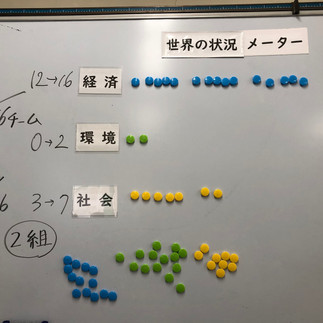 世界の状況 メーター
12→16 経済
6チーム
0→2 環境
6 3→7 社会
2組